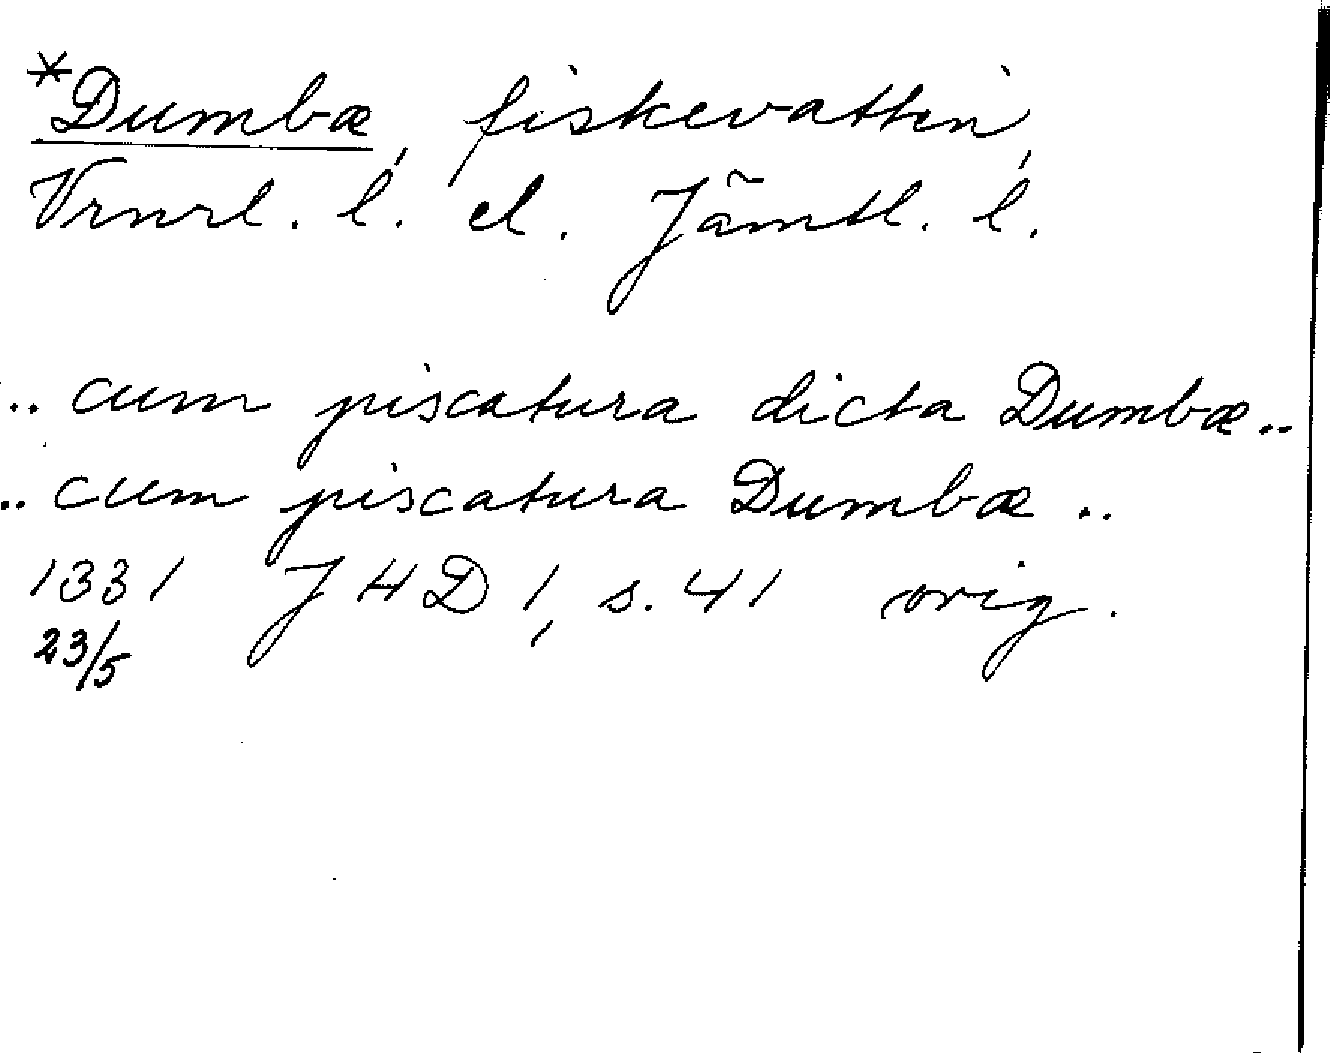 *Dumbæ, fiskevatten,
Vrnrl. l. el. Jämtl. l.
.. cum piscatura dicta Dumbæ ..
.. cum piscatura Dumbæ ..
1331 JHD 1, s. 41 orig.
23/5